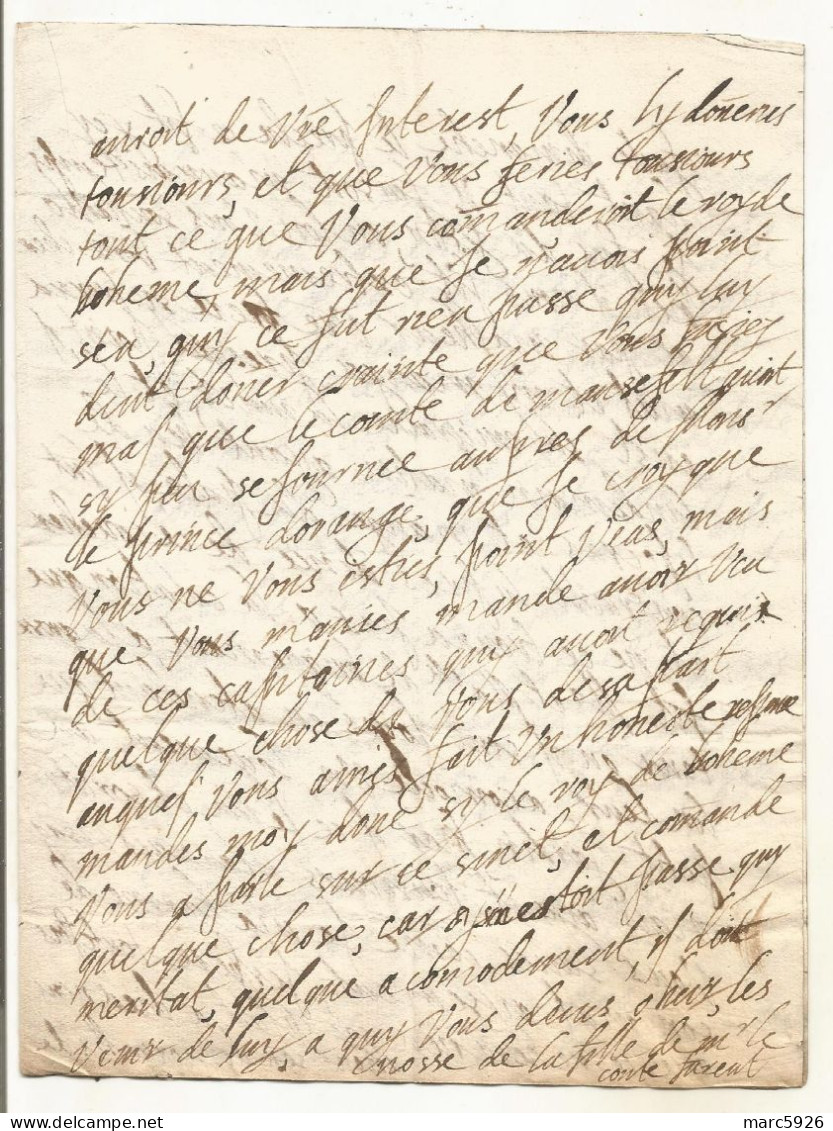 auroit de vre Interest, Vous luy doneries
tousiours, et que Vous feries tousiours
tout ce que Vous comanderoit le roy de
boheme, mais que Je n'auois point
seu, quy ce fut rien passe quy luy
deut doner crainte que Vous
mal que le comte de mansefelt auoit
sy peu seJourne aupres de Monsr
le prince dorange, que Je croy que
Vous ne Vous esties point veus, mais
que Vous m'auies mande auoir Veu
de ces capitaines quy auoit requis
quelque chose de Vous de sa part
auquel Vous auies fait Vn honeste
mandes moy donc sy le roy de boheme
Vous a parle sur ce suiet, et comande
quelque chose, car estoit passe quy
meritat, quelque acomodement, il doit
Venir de luy, a quy Vous deues obeir, les
nosse de la fille de mr le
conte furent
marc5926